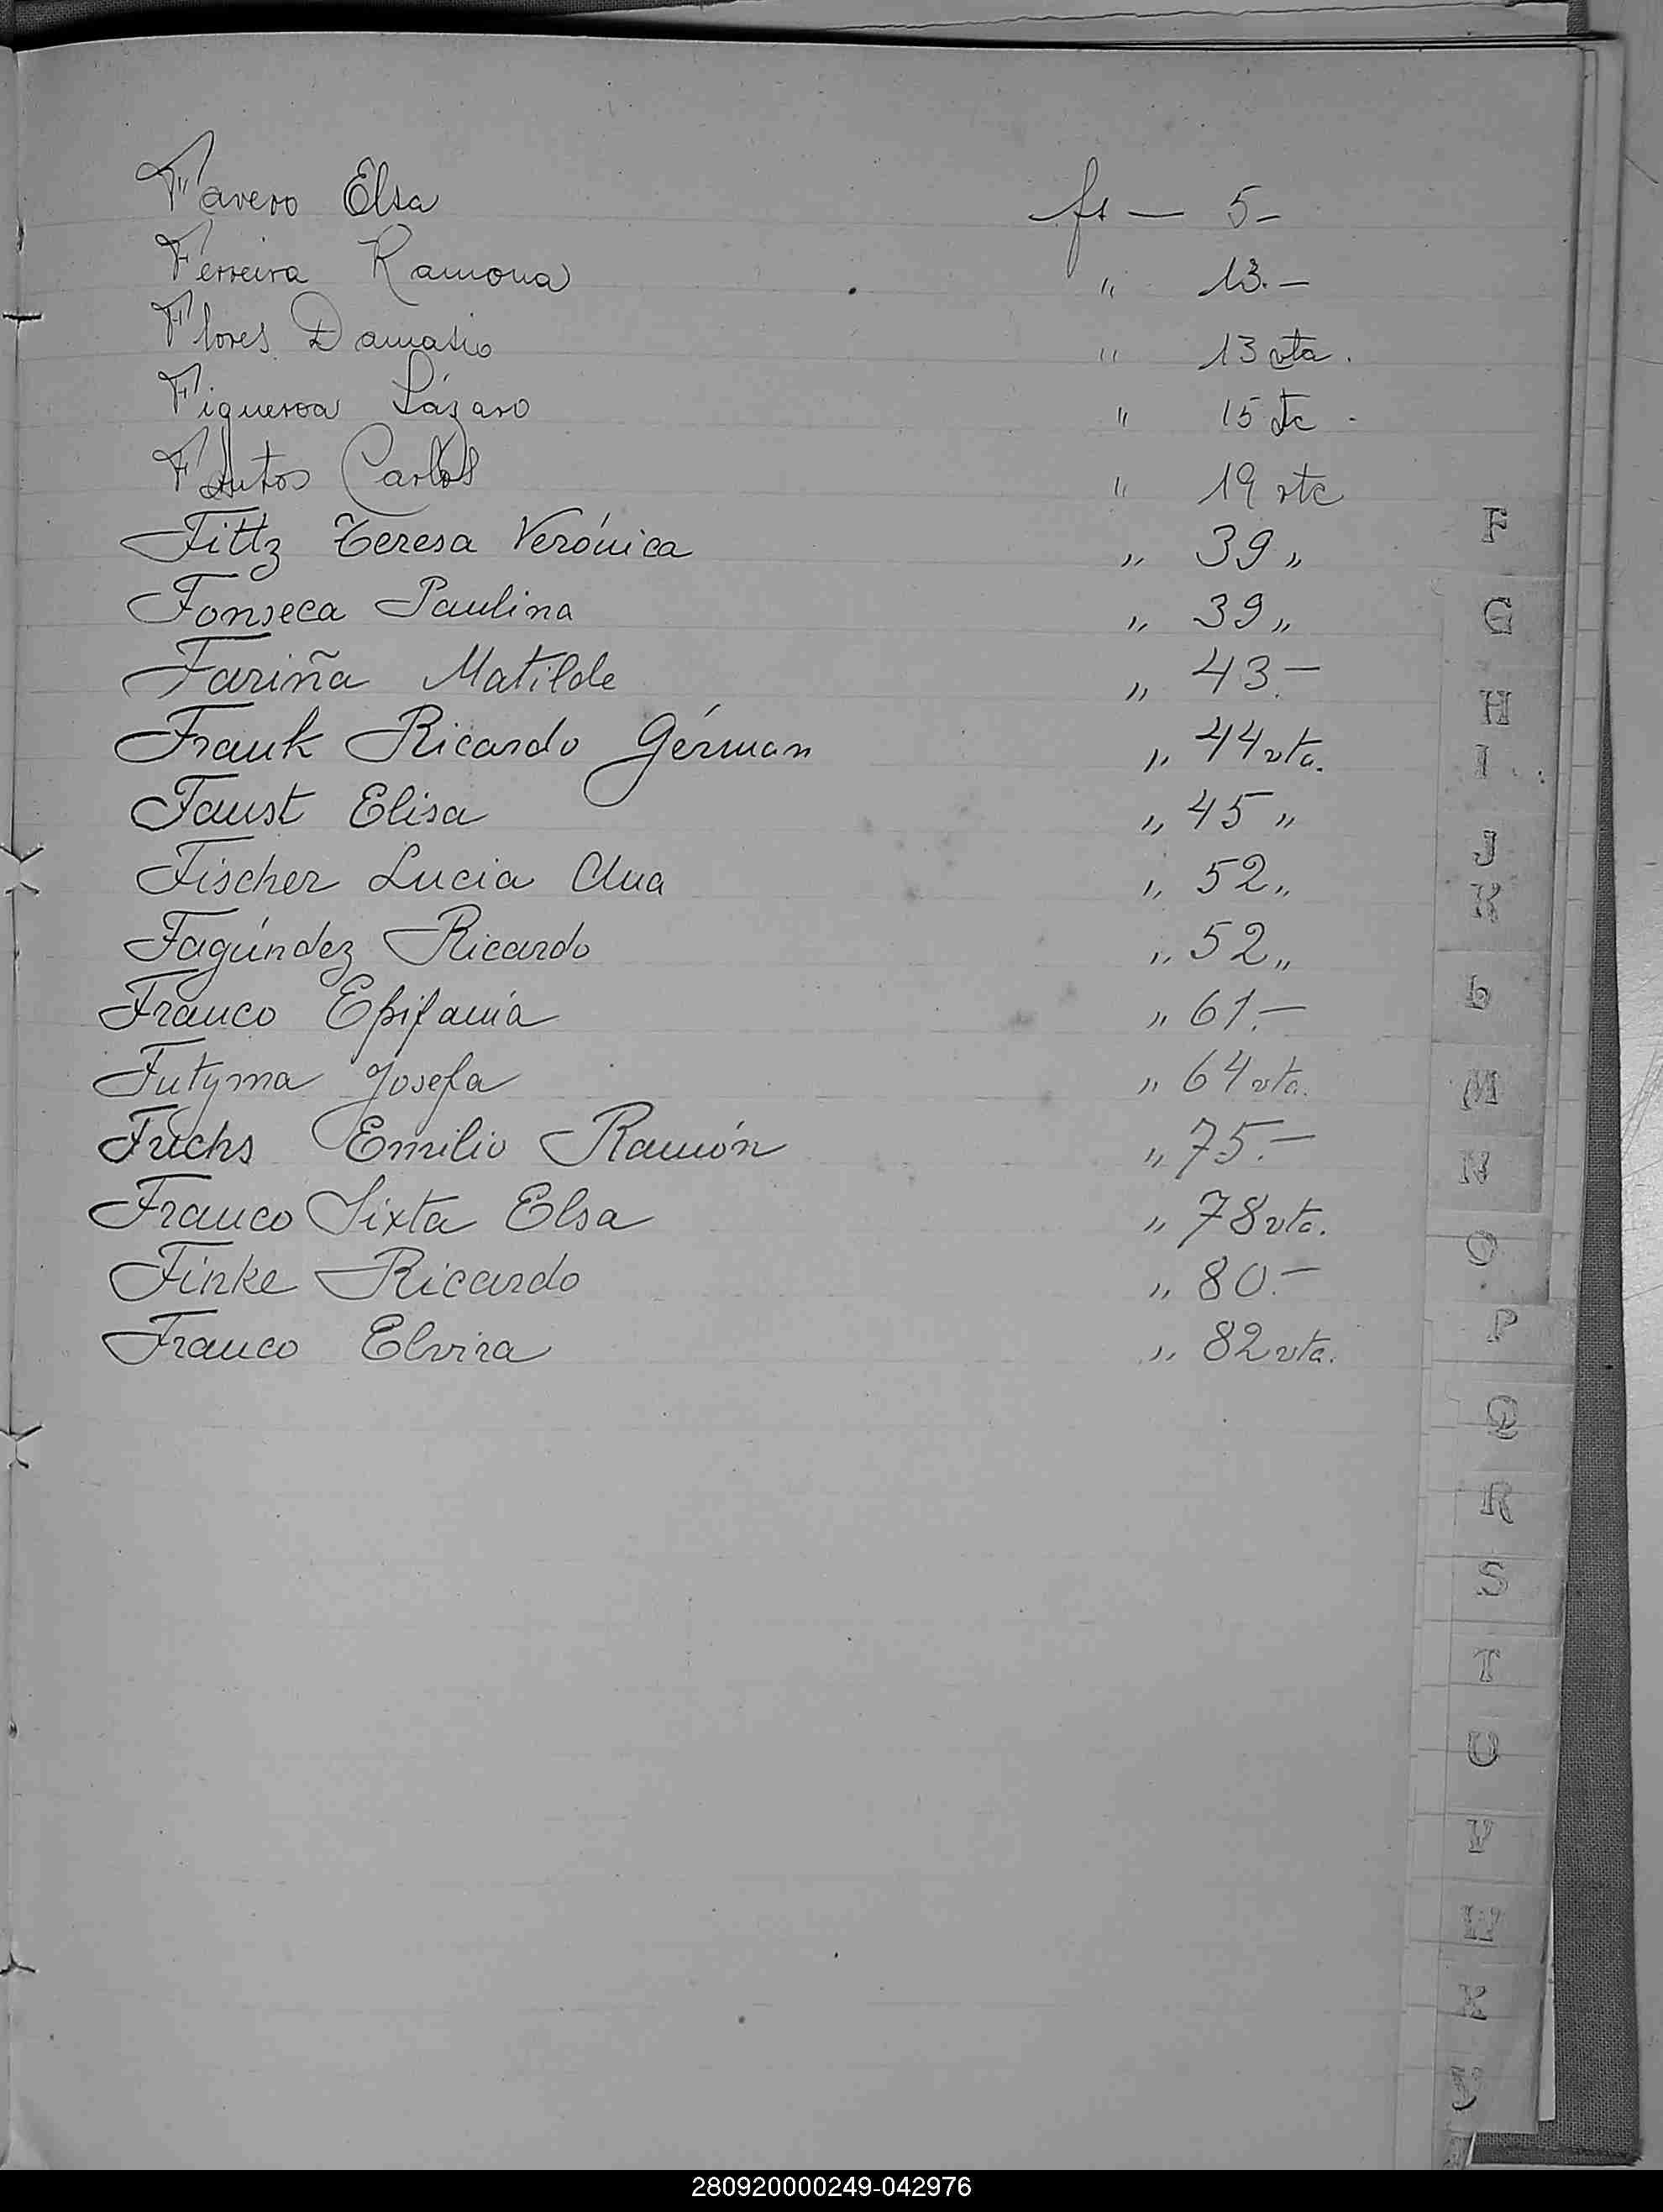 Favero Elsa fs — 5-
Ferreira Ramona " 13.—
Flores Damasio " 13 vta.
Figueroa Lázaro " 15 vta
Carlos " 19 vta
Fittz Teresa Verónica " 39 "
Fonseca Paulina " 39 "
Fariña Matilde " 43.—
Frank Ricardo Gérman " 44 vta.
Faust Elisa " 45 "
Fischer Lucia Ana " 52 "
Fagúndez Ricardo " 52 "
Franco Epifanía " 61.—
Futyma Josefa " 64 vta.
Fuchs Emilio Ramón " 75.—
Franco Sixta Elsa " 78 vta.
Finke Ricardo " 80.—
Franco Elvira " 82 vta.
F
G
H
I
J
K
L
M
N
O
P
Q
R
S
T
U
V
W
X
Y
280920000249-042976